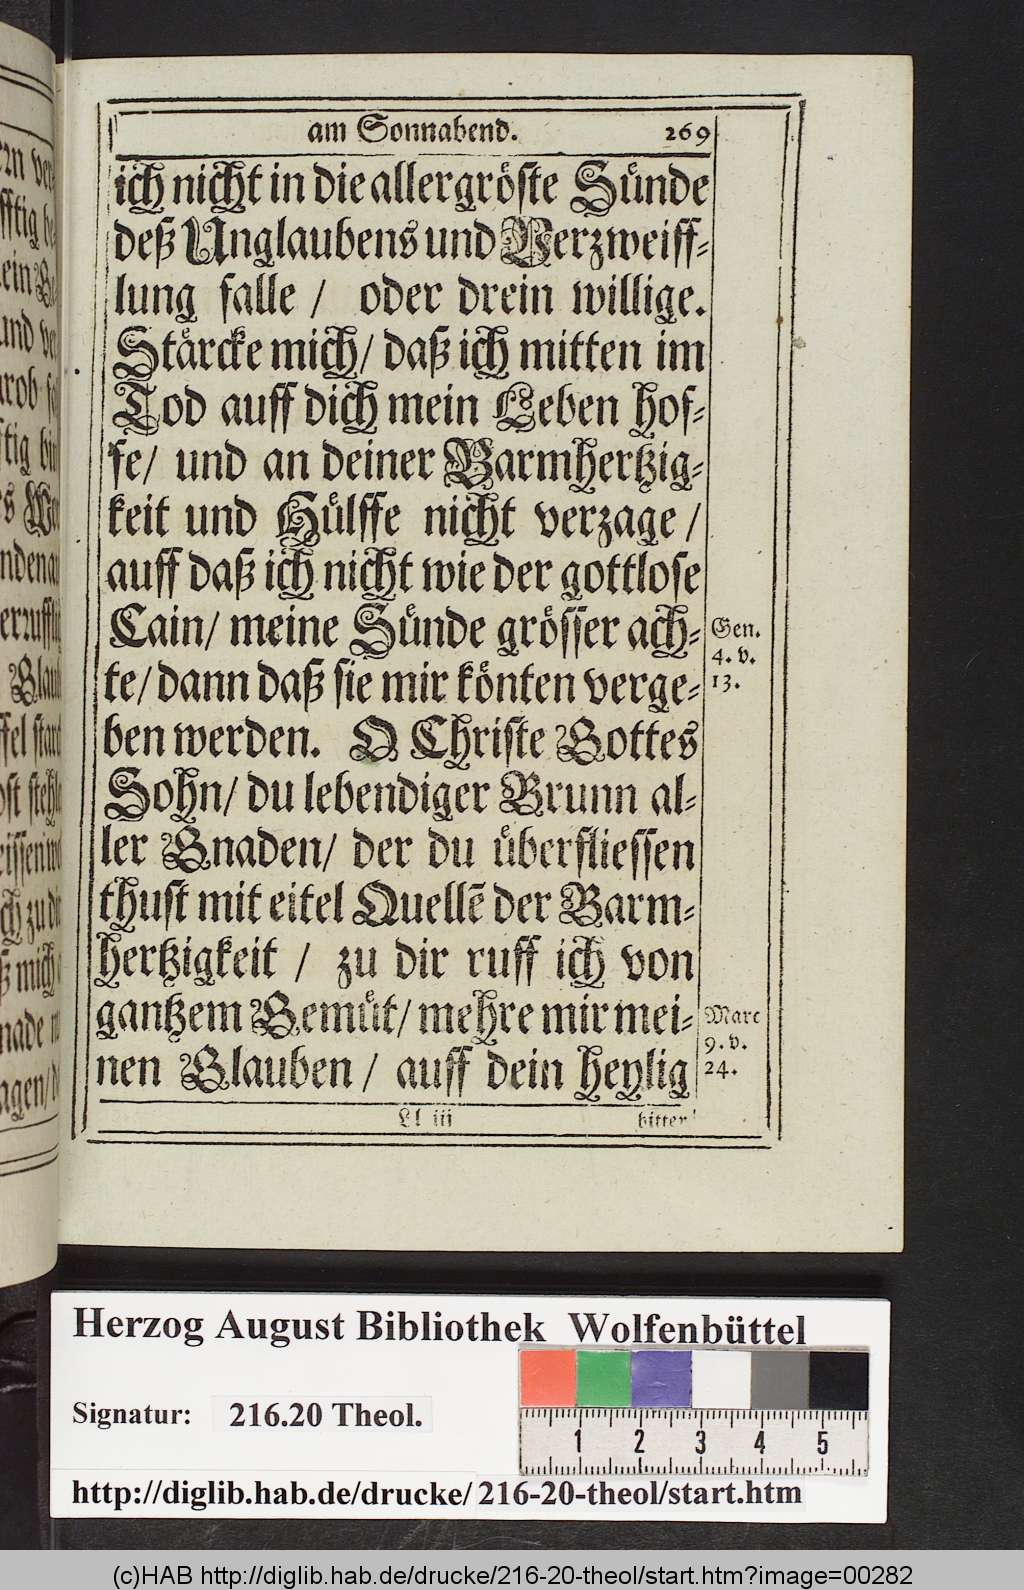 am Sonnabend. 269
ich nicht in die allergröste Sünde
deß Unglaubens und Verzweiff-
lung falle / oder drein willige.
Stärcke mich / daß ich mitten im
Tod auff dich mein Leben hof-
fe / und an deiner Barmhertzig-
keit und Hülffe nicht verzage /
auff daß ich nicht wie der gottlose
Cain / meine Sünde grösser ach-
te / dann daß sie mir könten verge-
ben werden. O Christe Gottes
Sohn / du lebendiger Brunn al-
ler Gnaden / der du überfliessen
thust mit eitel Quellē der Barm-
hertzigkeit / zu dir ruff ich von
gantzem Gemüt / mehre mir mei-
nen Glauben / auff dein heylig
Gen.
4. v.
13.
Marc
9. v.
24.
Ll iij
bitter
Herzog August Bibliothek Wolfenbüttel
Signatur: 216.20 Theol.
1 2 3 4 5
http://diglib.hab.de/drucke/216-20-theol/start.htm
(c)HAB http://diglib.hab.de/drucke/216-20-theol/start.htm?image=00282